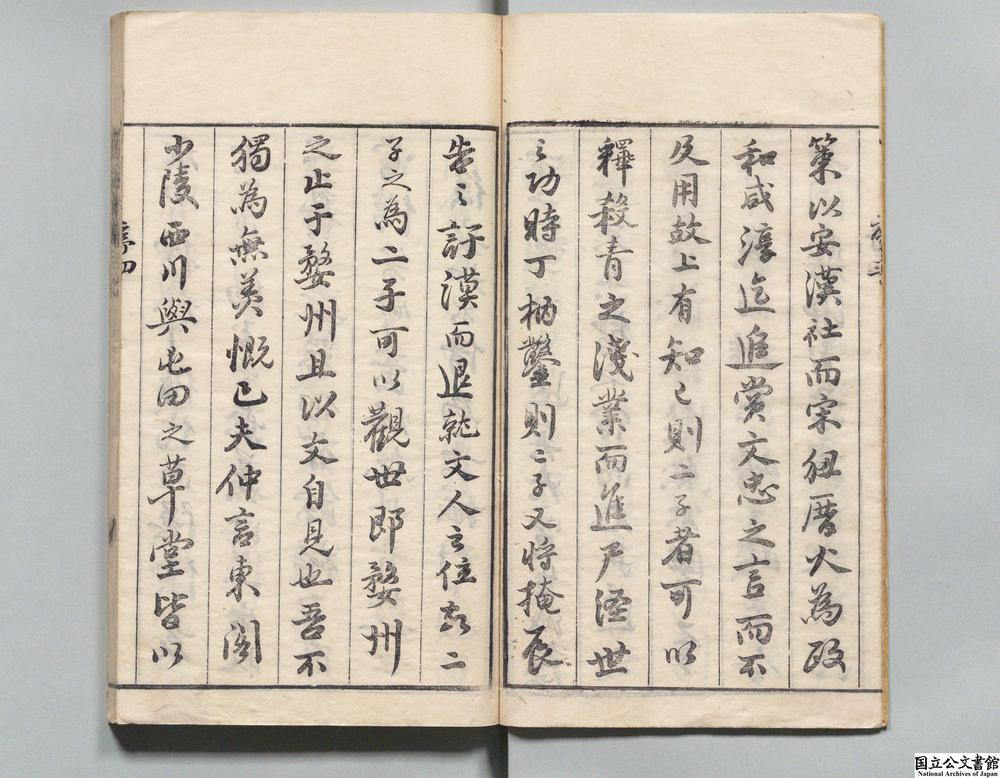 策以安漢社而宋紐曆火為政
和咸淳迄進賞文忠之言而不
及用故上有知己則二子者可以
釋殺青之淺業而進尸經世
之功時丁枘鑿則二子又將掩辰
告之訏謨而退就文人之位故二
子之為二子可以觀世即婺州
之止于婺州且以文自見也吾不
獨為無羨慨已夫仲言東閣
少陵西川與屯田之草堂皆以
序四
国立公文書館
National Archives of Japan